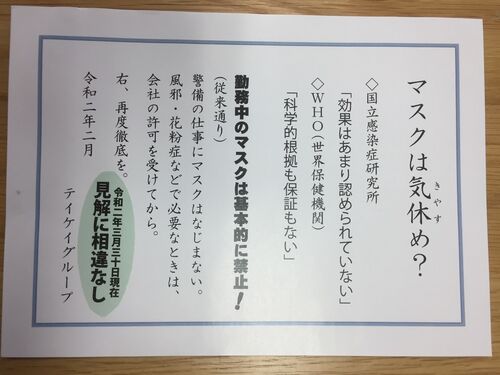 マスクは気休め？
きやす
◇国立感染症研究所
「効果はあまり認められていない」
◇WHO（世界保健機関）
「科学的根拠も保証もない」
勤務中のマスクは基本的に禁止！
（従来通り）
警備の仕事にマスクはなじまない。
風邪・花粉症などで必要なときは、
会社の許可を受けてから。
右、再度徹底を。
令和二年二月
テイケイグループ
令和二年三月三十日現在
見解に相違なし